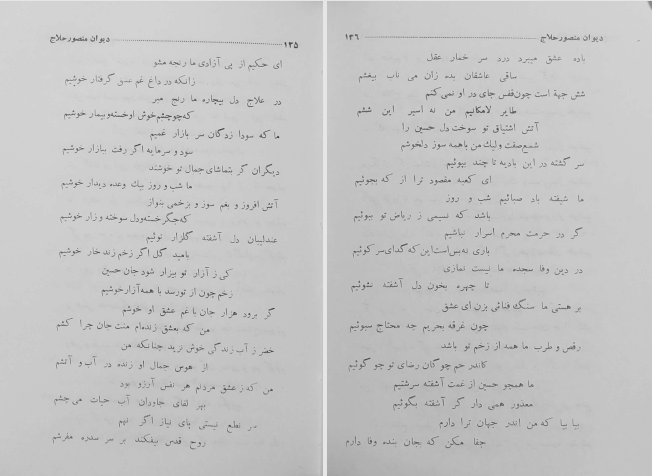 دیوان منصور حلاج ۱۳۶
باده عشق میبرد درد سر خمار عقل
ساقی عاشقان بده زان می ناب بیغشم
شش جهة است چون قفس جای در او نمی‌کنم
طایر لامکانیم من نه اسیر این ششم
آتش اشتیاق تو سوخت دل حسین را
شمع صفت ولیک من با همه سوز دلخوشم
سر گشته در این بادیه تا چند بپوئیم
ای کعبه مقصود ترا از که بجوئیم
ما شیفته باد صبائیم شب و روز
باشد که نسیمی ز ریاض تو ببوئیم
گر در حرمت محرم اسرار نباشیم
باری نه بس است این که گدای سر کوئیم
در دین وفا سجده ما نیست نمازی
تا چهره بخون دل آشفته نشوئیم
بر هستی ما سنگ فنائی بزن ای عشق
چون غرقه بحریم چه محتاج سبوئیم
رقص و طرب ما همه از زخم تو باشد
کاندر خم چوگان رضای تو چو گوئیم
ما همچو حسین از غمت آشفته سرشتیم
معذور همی دار گر آشفته بگوئیم
بیا بیا که من اندر جهان ترا دارم
جفا مکن که بجان بنده وفا دارم
دیوان منصور حلاج ۱۳۵
ای حکیم از پی آزادی ما رنجه مشو
زانکه در داغ غم عشق گرفتار خوشیم
در علاج دل بیچاره ما رنج مبر
که چو چشم خوش او خسته و بیمار خوشیم
ما که سودا زدگان سر بازار غمیم
سود و سرمایه اگر رفت ببازار خوشیم
دیگران گر بتماشای جمال تو خوشند
ما شب و روز بیک وعده دیدار خوشیم
آتش افروز و بغم سوز و بزخمی بنواز
که جگر خسته و دل سوخته و زار خوشیم
عندلیبان دل آشفته گلزار توئیم
بامید گل اگر زخم زند خار خوشیم
کی ز آزار تو بیزار شود جان حسین
زخم چون از تو رسد با همه آزار خوشیم
گر برود هزار جان با غم عشق او خوشم
من که بعشق زنده‌ام منت جان چرا کشم
خضر ز آب زندگی خوش نزید چنانکه من
از هوس جمال او زنده در آب و آتشم
من که ز عشق مردم هر نفس آرزو بود
بهر لقای جاودان آب حیات می چشم
بر نطع نیستی پای نیاز اگر نهم
روح قدس بیفکند بر سر سدره مفرشم